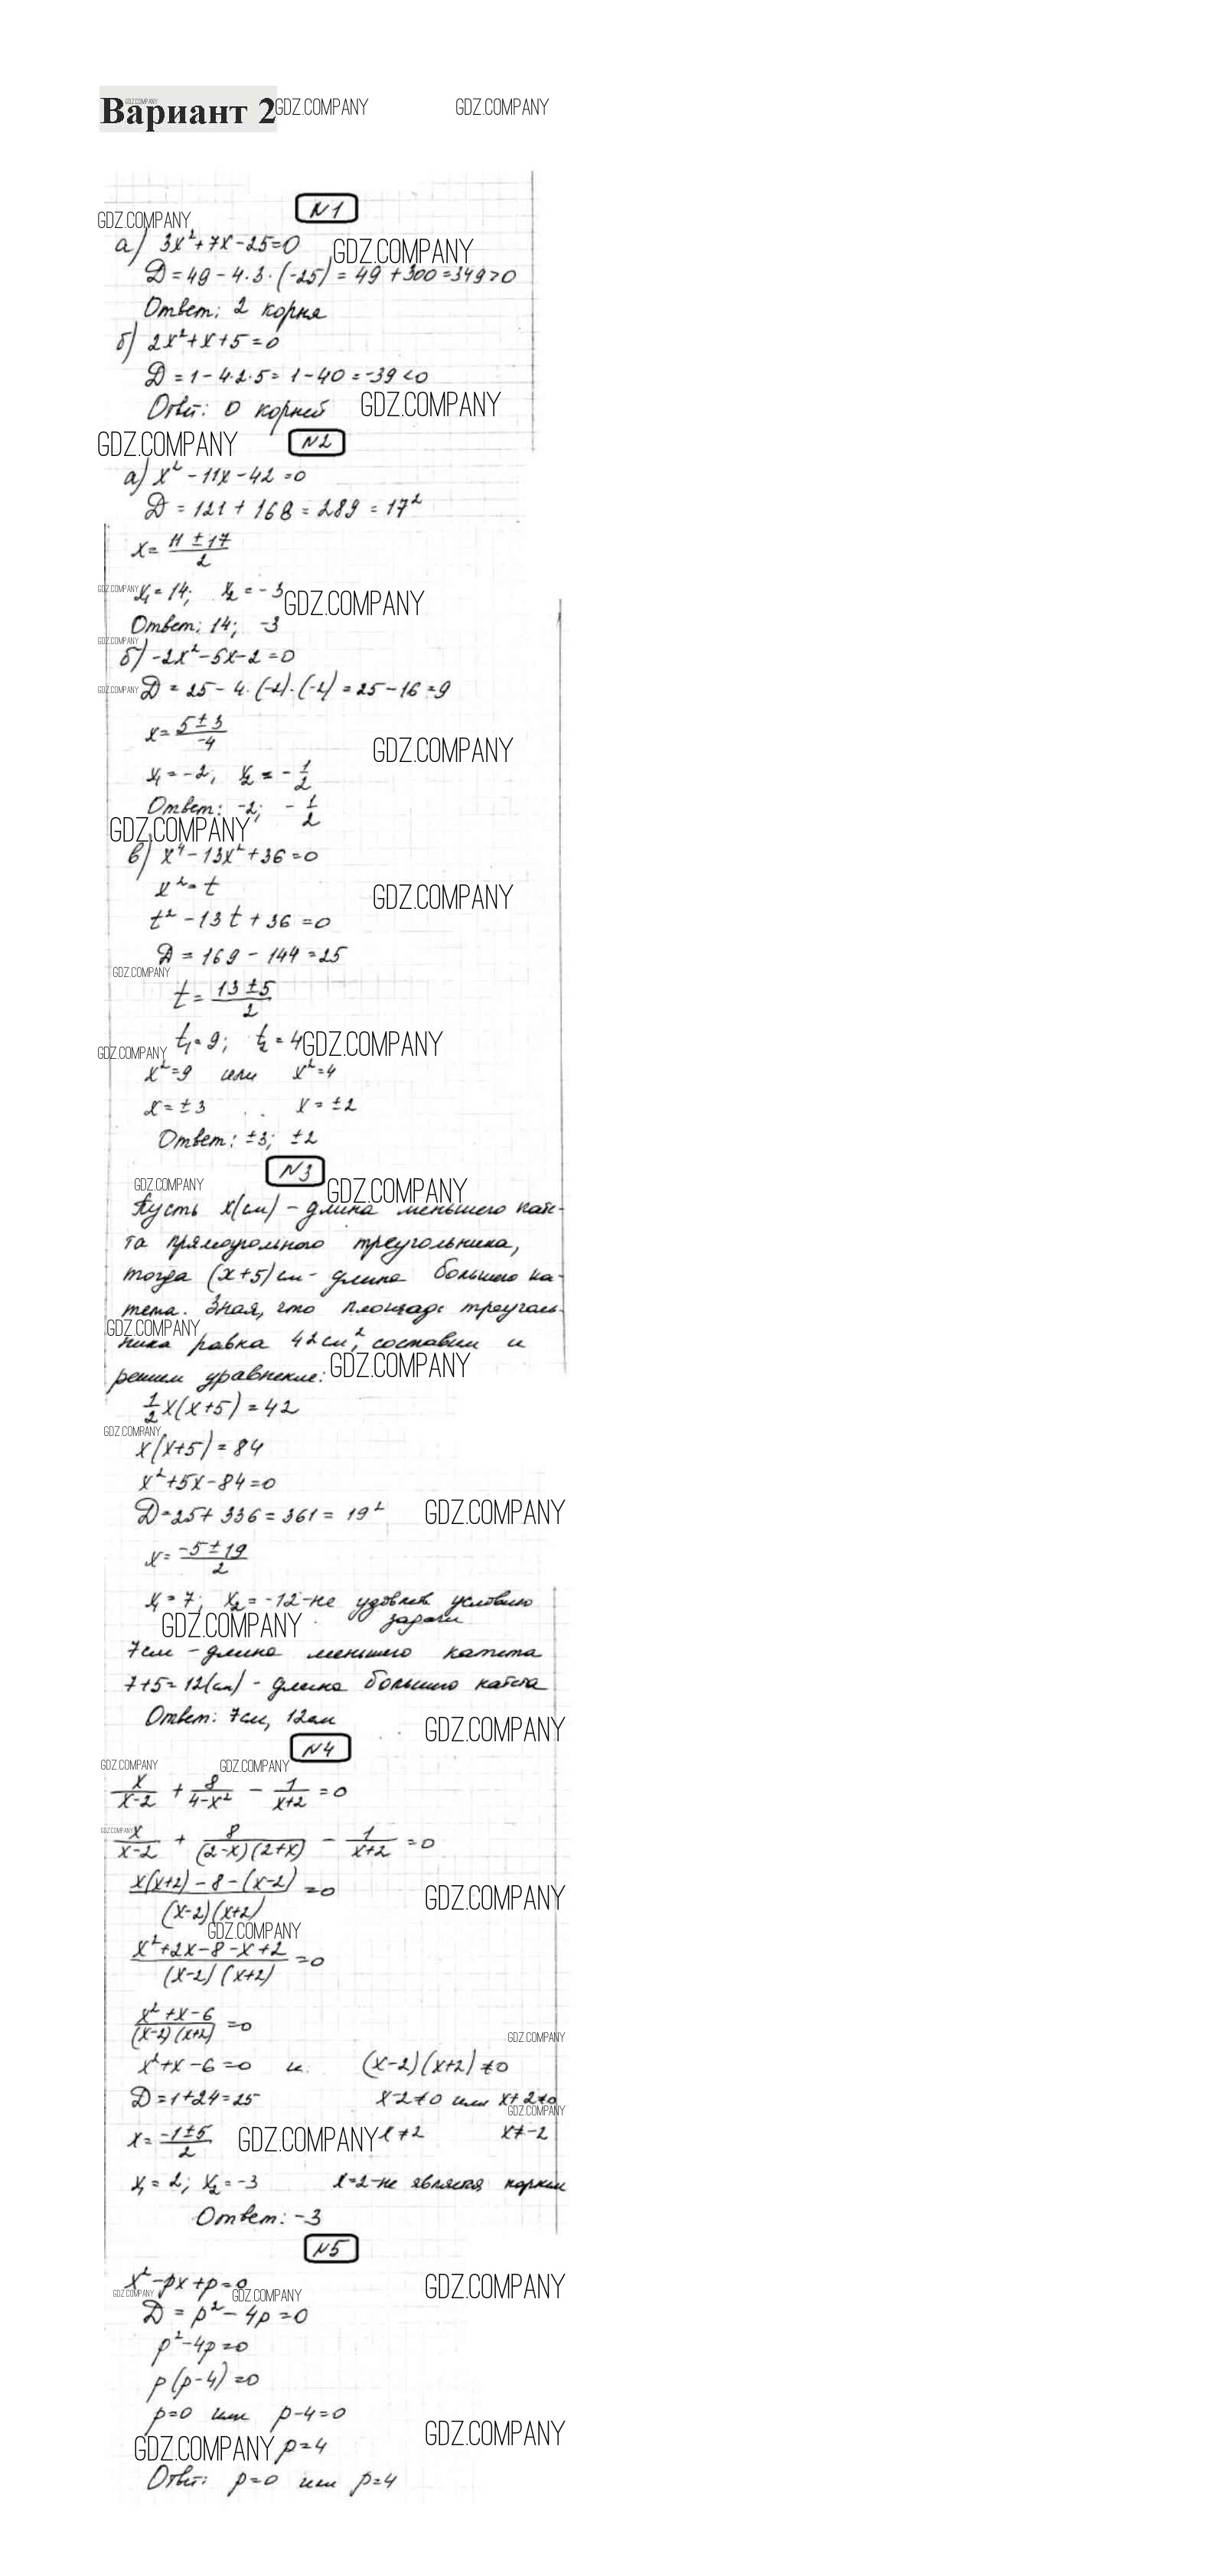 Вариант 2
GDZ.COMPANY
GDZ.COMPANY
N1
GDZ.COMPANY
а) 3x²+7x-25=0
GDZ.COMPANY
D = 49 - 4·3·(-25) = 49 + 300 = 349 > 0
Ответ: 2 корня
б) 2x²+x+5=0
D = 1 - 4·2·5 = 1 - 40 = -39 < 0
Отвт: 0 корней
GDZ.COMPANY
GDZ.COMPANY
N2
а) x² - 11x - 42 = 0
D = 121 + 168 = 289 = 17²
x = (11 ± 17)/2
GDZ.COMPANY
x₁ = 14; x₂ = -3
GDZ.COMPANY
Ответ: 14; -3
GDZ.COMPANY
б) -2x²-5x-2=0
GDZ.COMPANY
D = 25 - 4·(-2)·(-2) = 25 - 16 = 9
x = (5 ± 3)/(-4)
GDZ.COMPANY
x₁ = -2, x₂ = -1/2
Ответ: -2; -1/2
GDZ.COMPANY
в) x⁴ - 13x² + 36 = 0
x² = t
GDZ.COMPANY
t² - 13t + 36 = 0
D = 169 - 144 = 25
GDZ.COMPANY
t = (13 ± 5)/2
t₁ = 9; t₂ = 4
GDZ.COMPANY
GDZ.COMPANY
x² = 9 или x² = 4
x = ±3 x = ±2
Ответ: ±3; ±2
N3
GDZ.COMPANY
GDZ.COMPANY
Пусть x(см) - длина меньшего кате-
та прямоугольного треугольника,
тогда (x+5) см - длина большего ка-
тета. Зная, что площадь треуголь-
GDZ.COMPANY
ника равна 42 см², составим и
решим уравнение:
GDZ.COMPANY
1/2 x(x+5) = 42
GDZ.COMPANY
x(x+5) = 84
x²+5x-84=0
D = 25 + 336 = 361 = 19²
GDZ.COMPANY
x = (-5 ± 19)/2
x₁ = 7; x₂ = -12 - не удовлет условию
GDZ.COMPANY
задачи
7см - длина меньшего катета
7+5=12(см) - длина большего катета
Ответ: 7см, 12см
GDZ.COMPANY
N4
GDZ.COMPANY
GDZ.COMPANY
x/(x-2) + 8/(4-x²) - 1/(x+2) = 0
GDZ.COMPANY
x/(x-2) + 8/((2-x)(2+x)) - 1/(x+2) = 0
(x(x+2) - 8 - (x-2))/((x-2)(x+2)) = 0
GDZ.COMPANY
GDZ.COMPANY
(x²+2x-8-x+2)/((x-2)(x+2)) = 0
(x²+x-6)/((x-2)(x+2)) = 0
GDZ.COMPANY
x²+x-6=0 и (x-2)(x+2)≠0
D = 1+24 = 25 x-2≠0 или x+2≠0
GDZ.COMPANY
x = (-1±5)/2
GDZ.COMPANY
x≠2 x≠-2
x₁ = 2; x₂ = -3 x=2 - не является корнем
Ответ: -3
N5
x²-px+p=0
GDZ.COMPANY
GDZ.COMPANY
GDZ.COMPANY
D = p² - 4p = 0
p²-4p=0
p(p-4)=0
p=0 или p-4=0
GDZ.COMPANY
GDZ.COMPANY
p=4
Отвт: p=0 или p=4